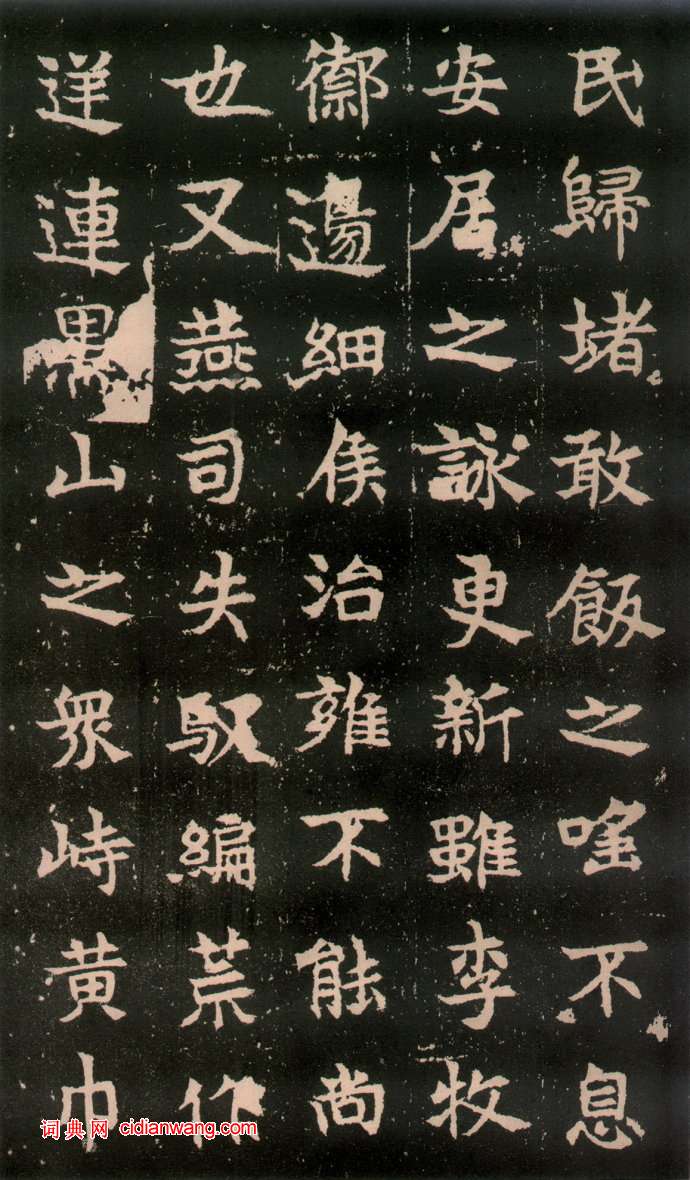 民歸堵敢飯之嗂不息
安居之詠更新雖李牧
禦邊細侯治雍不能尚
也又燕司失馭編荒作
逆連黑山之眾峙黃巾
词典网 cidianwang.com